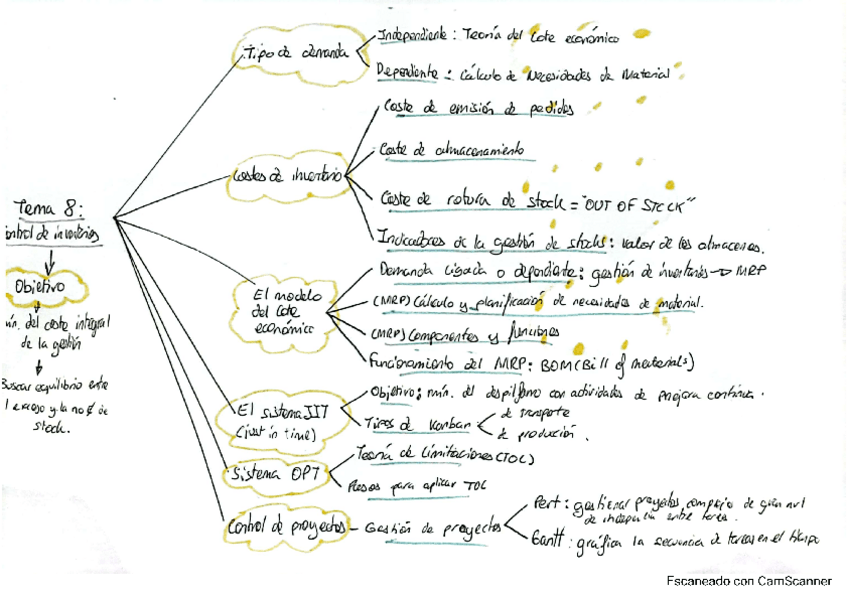 Tema 8:
ontrol de inventarios
Objetivo
ín. del coste integral
de la gestión
Buscar equilibrio entre
l exceso y la no de
stock.
Tipo de demanda
Independiente: Teoría del Lote económico
Dependiente: Cálculo de Necesidades de Material
Costes de inventario
Coste de emisión de pedidos
Coste de almacenamiento
Coste de rotura de stock = "OUT OF STOCK"
Indicadores de la gestión de stocks: valor de los almacenes.
El modelo
del lote
económico
Demanda ligada o dependiente: gestión de inventarios → MRP
(MRP) Cálculo y planificación de necesidades de material.
(MRP) Componentes y funciones
Funcionamiento del MRP: BOM (Bill of materials)
El sistema JIT
(just in time)
Objetivo: mín. del despilfarro con actividades de mejora continua.
Tipos de Kanban
de transporte
de producción.
Sistema OPT
Teoría de Limitaciones (TOC)
Pasos para aplicar TOC
Control de proyectos - Gestión de proyectos
Pert: gestionar proyectos complejo de gran nvl
de entre tareas.
Gantt: gráfica la secuencia de tareas en el tiempo
Escaneado con CamScanner